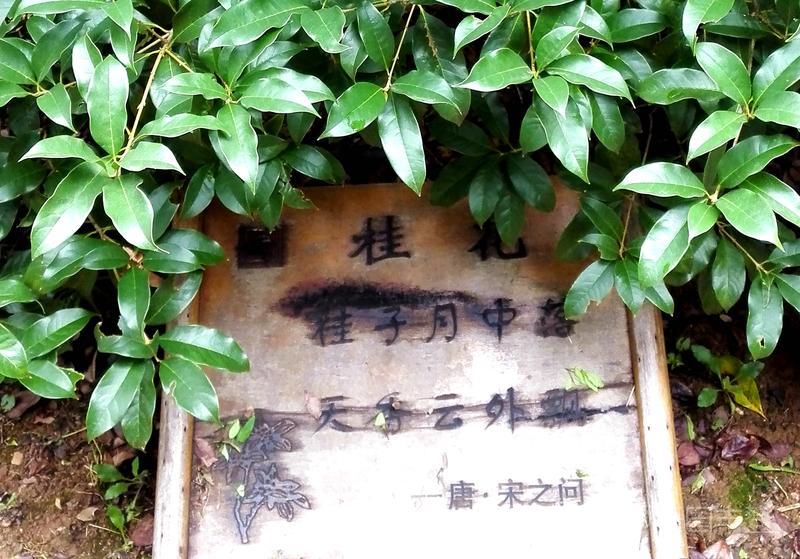 桂花
桂子月中落
天香云外飘
—唐·宋之问